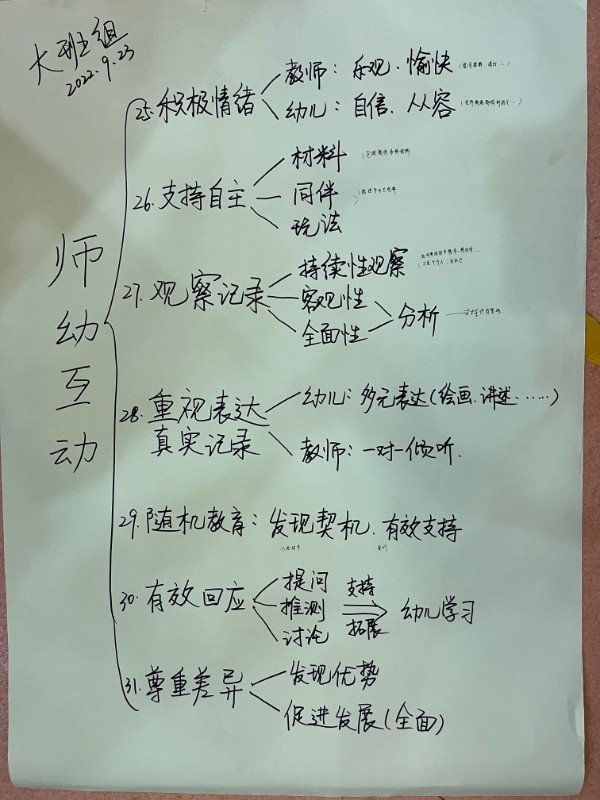 大班组
2022.9.23
师幼互动
25.积极情绪
教师：乐观、愉快
幼儿：自信、从容
26.支持自主
材料
同伴
玩法
27.观察记录
持续性观察
客观性
全面性
分析
28.重视表达
真实记录
幼儿：多元表达(绘画、讲述……)
教师：一对一倾听.
29.随机教育：发现契机、有效支持
30.有效回应
提问
推测
讨论
支持
拓展
幼儿学习
31.尊重差异
发现优势
促进发展(全面)